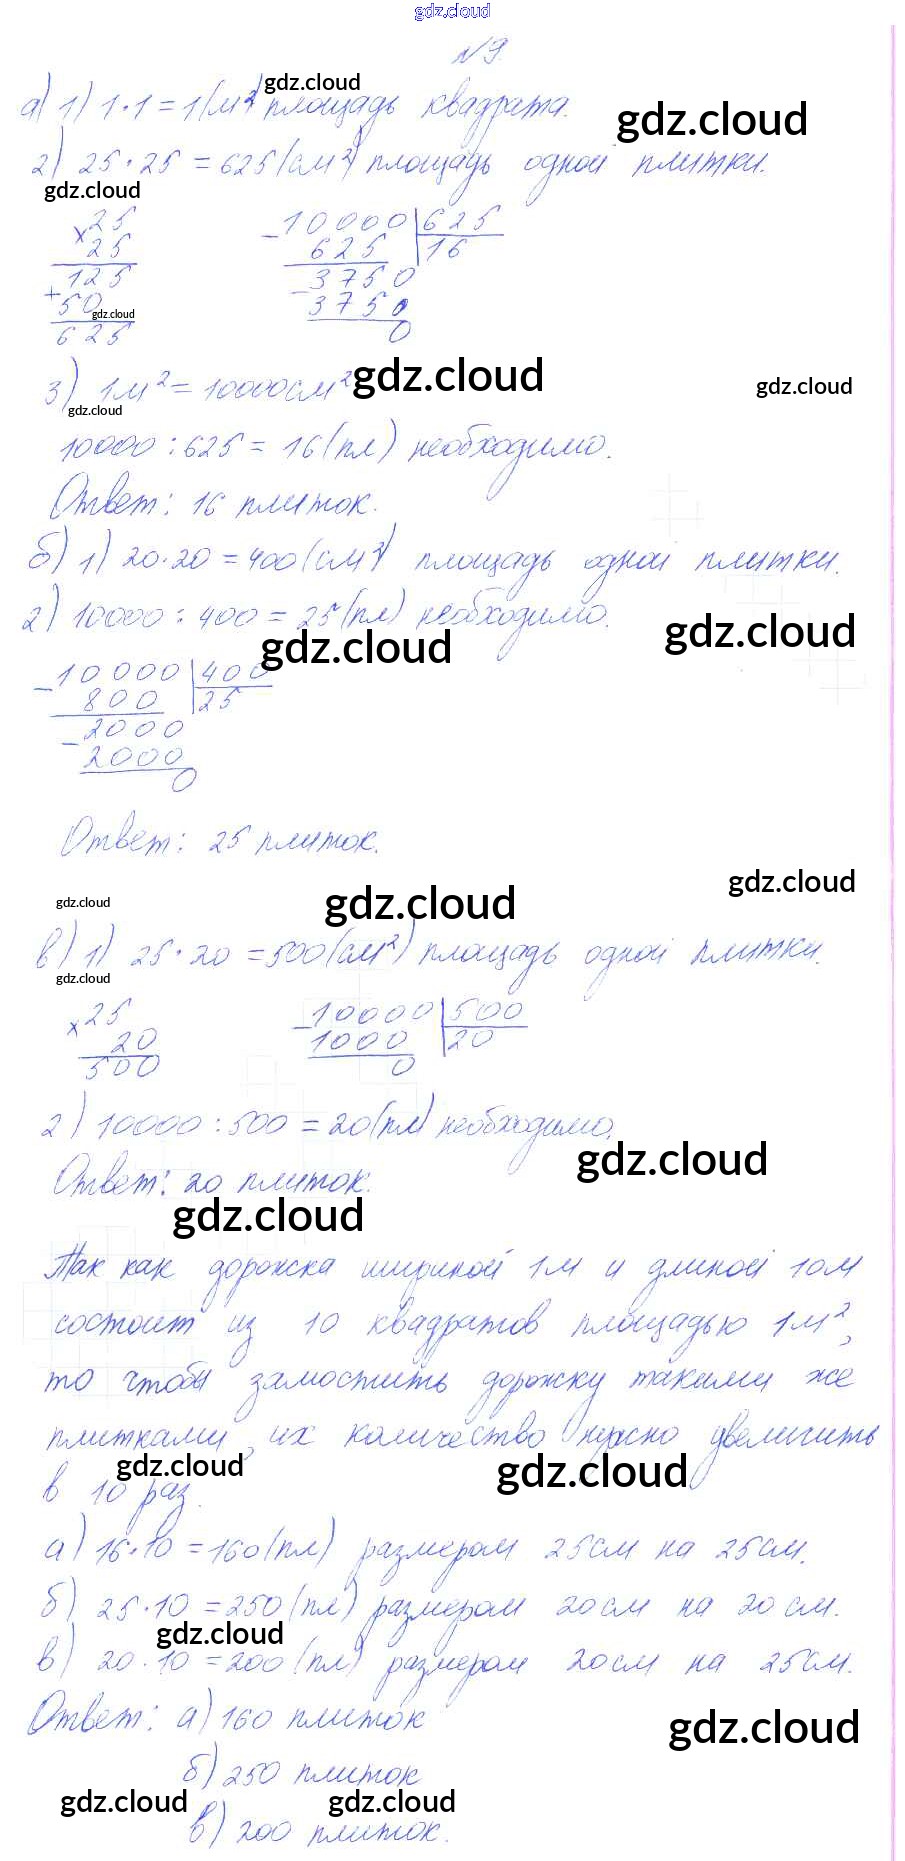 gdz.cloud
№9.
gdz.cloud
а) 1) 1·1=1(м²) площадь квадрата.
gdz.cloud
2) 25·25=625(см²) площадь одной плитки.
gdz.cloud
×25 −10000|625
25 625 |16
125 −3750
+50 3750
gdz.cloud
625 0
gdz.cloud
3) 1м²=10000см²
gdz.cloud
gdz.cloud
10000:625=16(пл) необходимо.
Ответ: 16 плиток.
б) 1) 20·20=400(см²) площадь одной плитки.
2) 10000:400=25(пл) необходимо.
gdz.cloud
gdz.cloud
−10000|400
800 |25
−2000
2000
0
Ответ: 25 плиток.
gdz.cloud
gdz.cloud
gdz.cloud
в) 1) 25·20=500(см²) площадь одной плитки.
gdz.cloud
×25 −10000|500
20 1000 |20
500 0
2) 10000:500=20(пл) необходимо.
gdz.cloud
Ответ: 20 плиток.
gdz.cloud
Так как дорожка шириной 1м и длиной 10м
состоит из 10 квадратов площадью 1м²,
то чтобы замостить дорожку такими же
плитками, их количество нужно увеличить
gdz.cloud
gdz.cloud
в 10 раз.
а) 16·10=160(пл) размером 25см на 25см.
б) 25·10=250(пл) размером 20см на 20см.
gdz.cloud
в) 20·10=200(пл) размером 20см на 25см.
Ответ: а) 160 плиток
gdz.cloud
б) 250 плиток
gdz.cloud
gdz.cloud
в) 200 плиток.